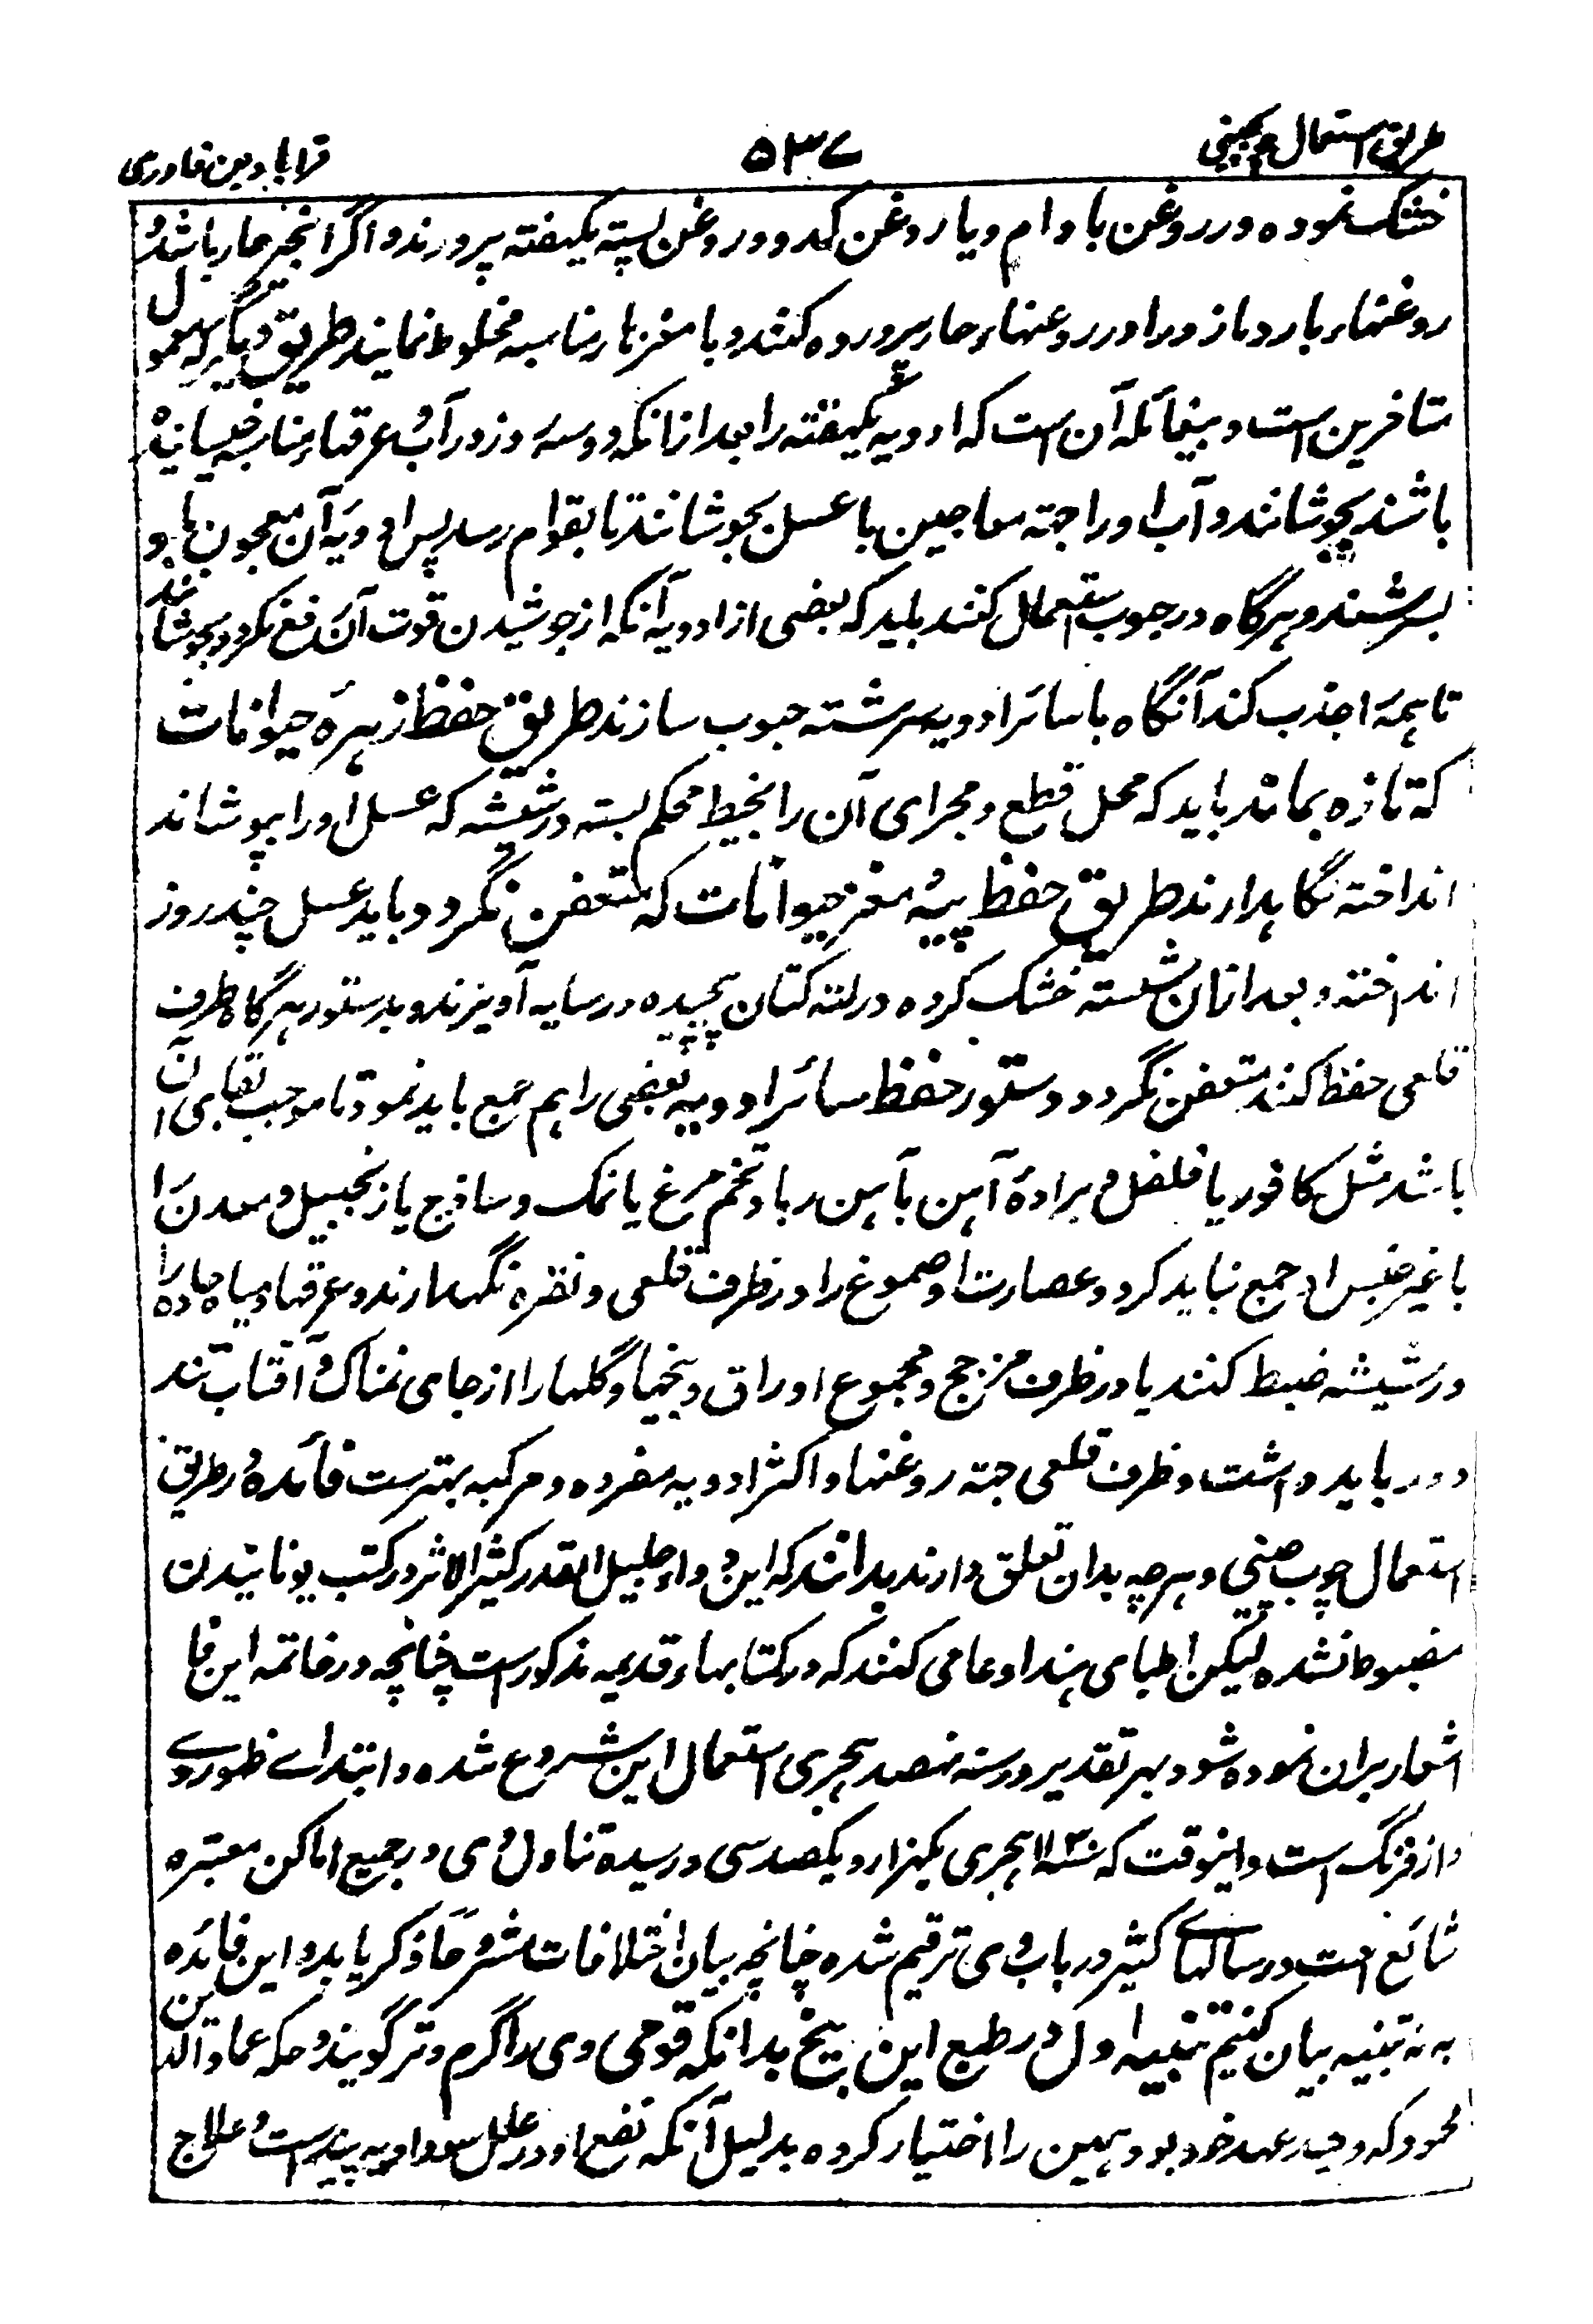 طریق استعمال چوبچینی
۵۳۷
قرابادین قادری
خشک نموده در روغن بادام و یا روغن کدو و روغن پسته یکهفته پرورند و اگر انچیز حار باشد در
روغنهاء بارد و بارد را در روغنهاء حار پرورده کنند و با مغزهاء مناسبه مخلوط نمایند طریق دیگر که معمول
متاخرین است و بیغائله آن است که ادویه یکهفته را بعد ازانکه دو سه روز در آب و عرقهاء مناسبه خیسانیده
باشند بجوشانند و آب او را جهته معاجین با عسل بجوشانند تا بقوام رسد پس ادویه آن معجون باو
بسرشند و هرگاه در حبوب استعمال کنند باید که بعضی از ادویه آنکه از جوشیدن قوت آن رفع نگردد بجوشانند
تا همه را جذب کند آنگاه با سائر ادویه سرشته حبوب سازند طریق حفظ زهره حیوانات
که تازه بماند باید که محل قطع و مجرای آن را بخیط محکم بسته در شیشه که عسل او را بپوشاند
انداخته نگاهدارند طریق حفظ پیه و مغز حیوانات که متعفن نگردد باید در عسل چند روز
انداخته و بعد ازان شسته خشک کرده در لته کتان پیچیده در سایه آویزند و بدستور هرگاه در ظرف
قلعی حفظ کنند متعفن نگردد و دستور حفظ سائر ادویه بعضی را بهم جمع باید نمود تا موجب بقای آن
باشد مثل کافور یا فلفل و براده آهن با آهن ربا و تخم مرغ یا نمک و ساذج یا زنجبیل و معدن را
با غیر جنس او جمع نباید کرد و عصارات و صموغ را در ظرف قلعی و نقره نگهدارند و عرقها و میاه حاده را
در شیشه ضبط کنند یا در ظرف مزجج و مجموع اوراق و بیخها و گلها را از جای نمناک و آفتاب تند
دور باید داشت و ظرف قلعی جهته روغنها و اکثر ادویه مفرده و مرکبه بهترست فائده در طریق
استعمال چوب چینی و هرچه بدان تعلق دارند بدانند که این دواء جلیل القدر کثیر الاثر در کتب یونانیان
مضبوط نشده لیکن اطبای هند ادعا می کنند که در کتابهاء قدیمه مذکورست چنانچه در خاتمه این فا
اشعار بران نموده شود بهر تقدیر در سنه نهصد هجری استعمال این شروع شده و ابتدای ظهور وے
از فرنگ است و اینوقت که سنه ۱۱۳۰ هجری یکهزار و یکصد و سی در رسیده تناول وی در جمیع اماکن معتبره
شائع است و رسالهاے کثیر در باب وی ترقیم شده چنانچه بیان اختلافات مشروحا ذکر یابد و این فائده
به نه تنبیه بیان کنیم تنبیه اول در طبع این بیخ بدانکه قومی وی را گرم و تر گویند و حکم عماد الدین
محمود که وحید عهد خود بود همین را اختیار کرده بدلیل آنکه نفع او در علل سوداویه پدیدست و علاج